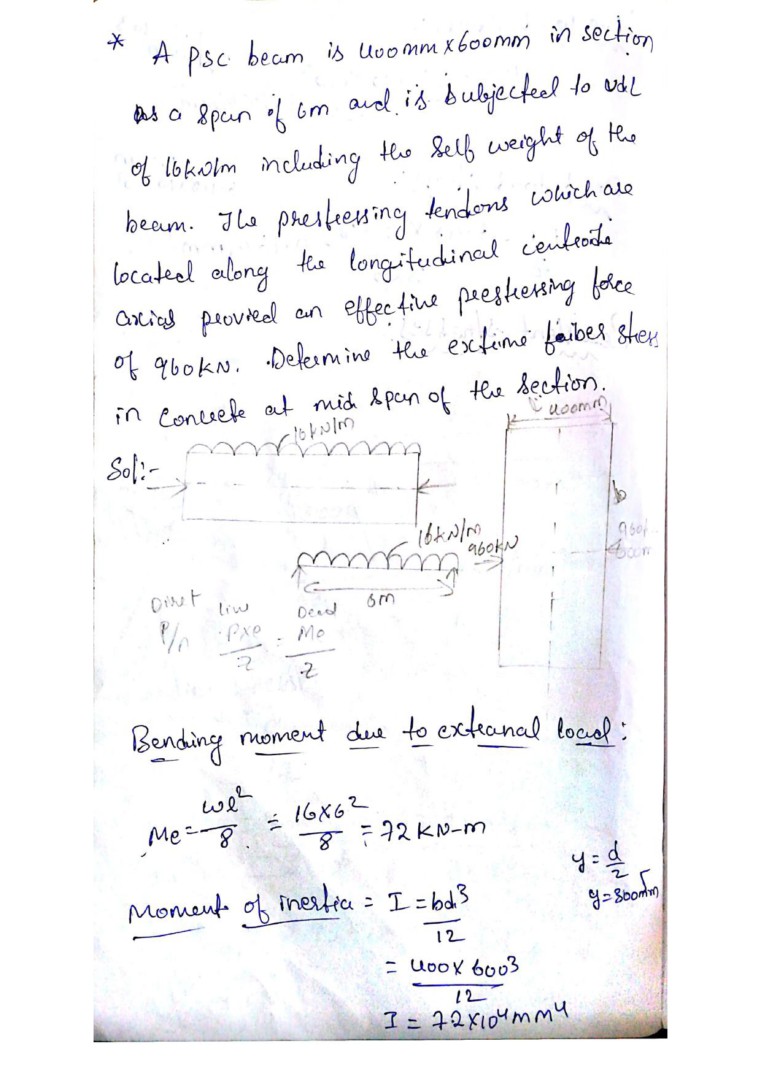 * A psc beam is 400mm x 600mm in section
as a span of 6m and is subjected to udl
of 16kN/m including the self weight of the
beam. The prestressing tendons which are
located along the longitudinal centroide
axial provied an effective prestressing force
of 960KN. Determine the extreme faiber stress
in concrete at mid span of the section.
400mm
16kN/m
Sol:-
b
16kN/m
960KN
6m
Diret Live Dead
P/A Pxe Mo
Z Z
Bending moment due to exteanal load:
Me = wl² / 8 = 16x6² / 8 = 72 KN-m
y = d / 2
y = 300mm
Moment of inertia = I = bd³ / 12
= 400 x 600³ / 12
I = 72x10⁴mm⁴